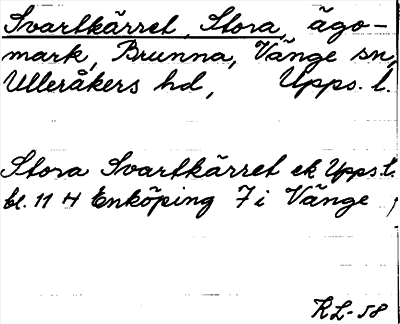 Svartkärret, Stora, ägo-
mark, Brunna, Vänge sn,
Ulleråkers hd, Upps. l.
Stora Svartkärret ek Upps. l.
bl. 11 H Enköping 7 i Vänge
KL-58